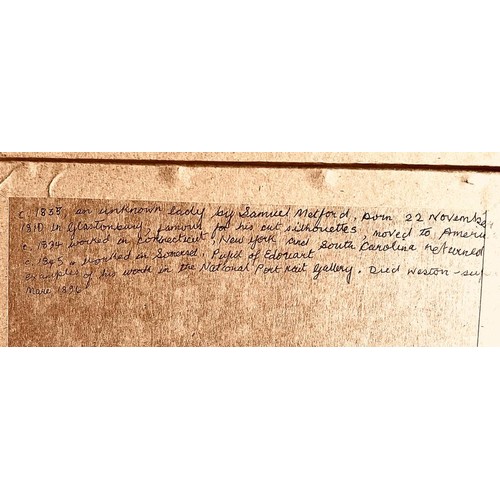 c. 1838, an unknown lady by Samuel Metford, born 22 November
1810 in Glastonbury, famous for his cut silhouettes, moved to Ameri
c. 1834 worked in Connecticut, New York and South Carolina returned
1845. worked in Somerset, Pupil of Edouart
examples of his work in the National Portrait Gallery. Died Weston-su
Mare 1896